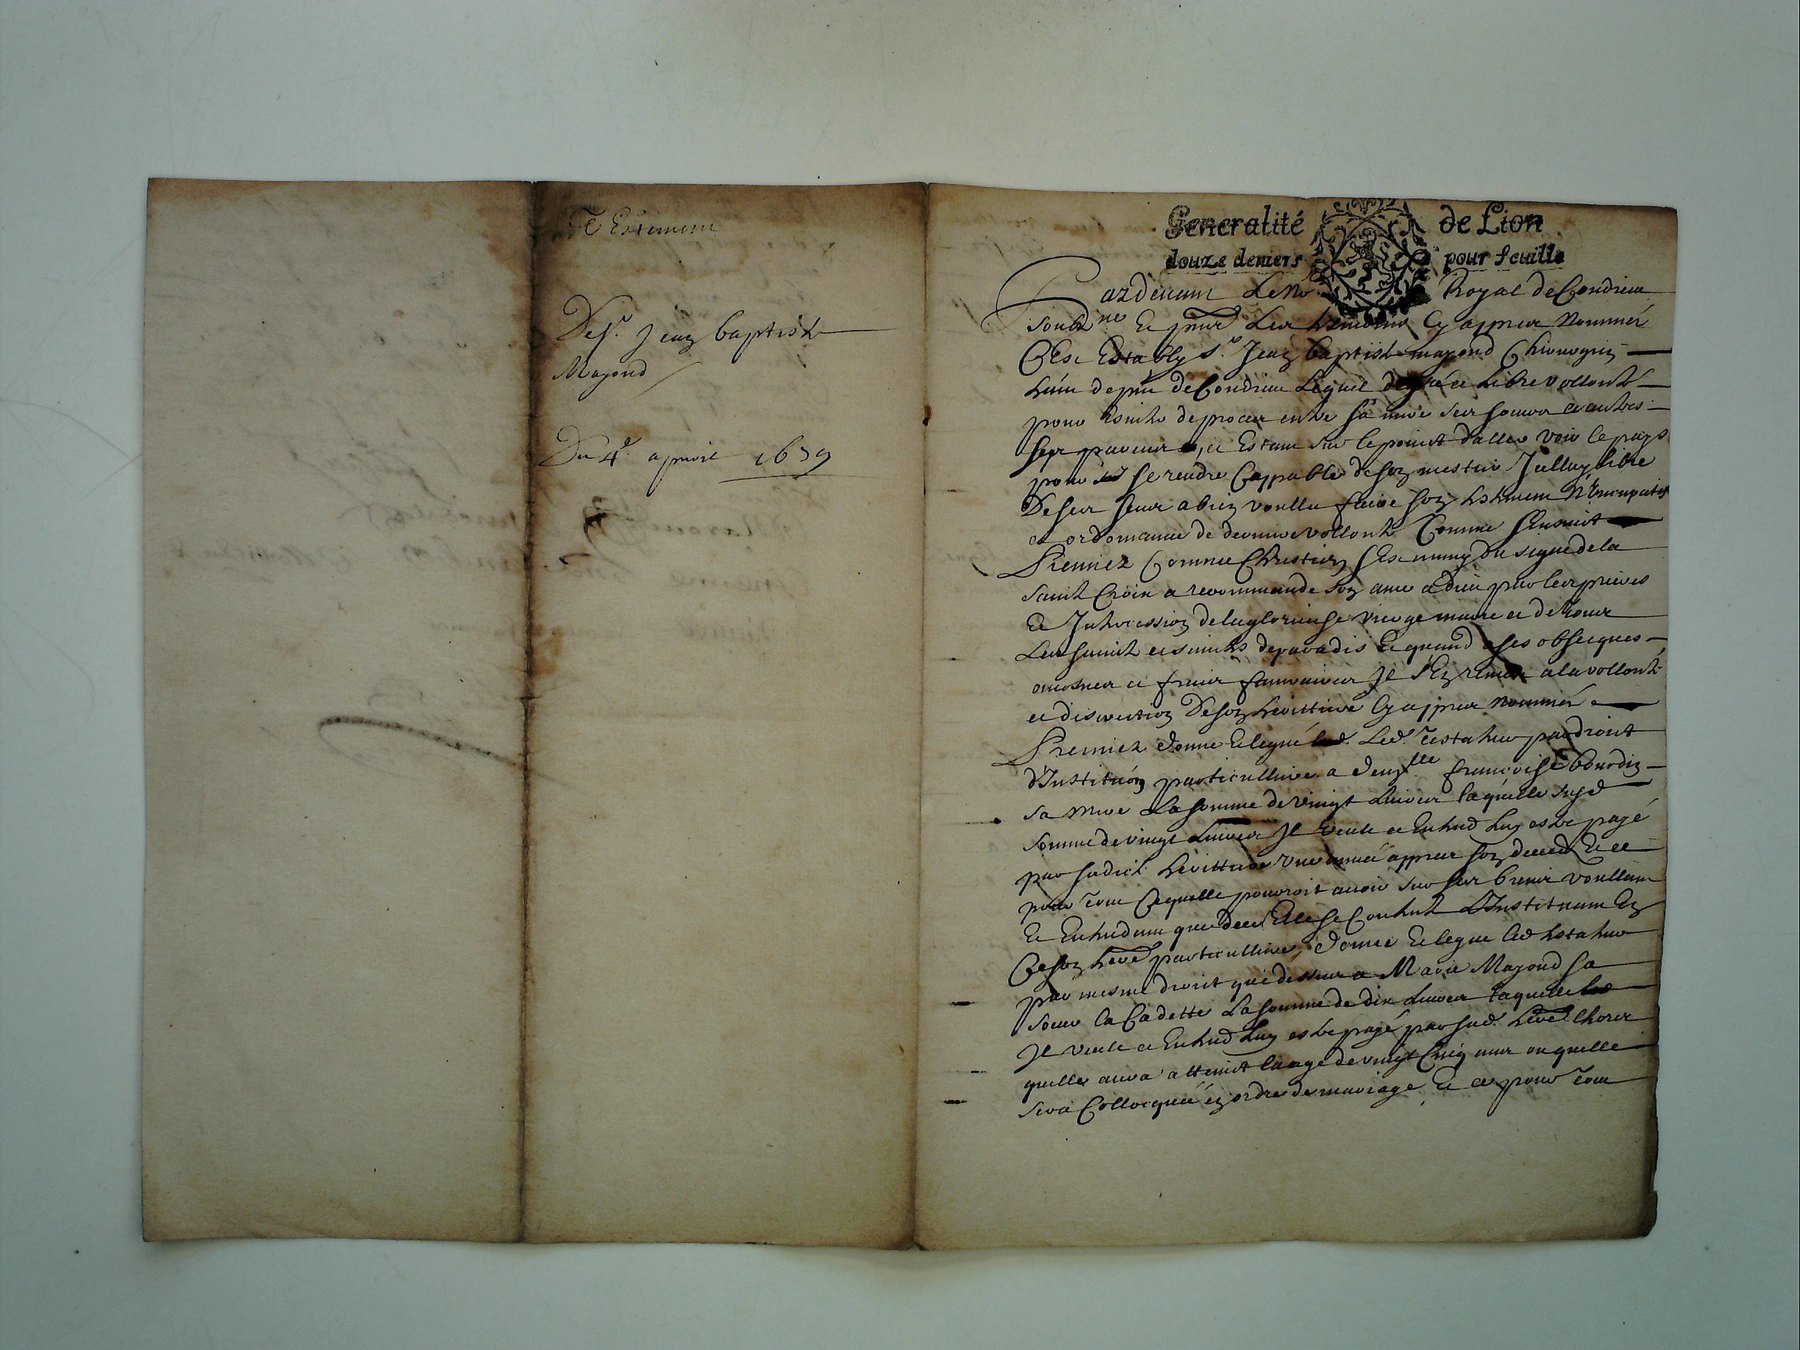 Testement
De Sr. Jean baptiste
Mayond
Du 4e. apvril 1659
Generalité de Lion
douze deniers pour feuille
Pardevant Le Nore Royal de Condrieu
soubzne Et pnt Les tesmoins Cy appres nommés
C'Est Estably Sr. Jean baptiste mayond Chirurgien
de Condrieu Lequel de gré et Libre vollonté
pour Esvite de proces entre sa mere ses soeurs et autres
Estant sur le point d'aller voir le pays
pour se rendre Cappable de son mestier Icelluy libre
De ses sens a bien voullu faire son testement Nuncupatif
et ordonnance de derniere vollonté Comme s'Ensuit
Premier Comme Chrestien s'Est muny du signe de la
saincte Croix a recommandé son ame a dieu par les prieres
Et Intercession de la glorieuse vierge marie et de Tous
Les saincts et sainctes de paradis Et quand a ses obseques
et frais funeraires Il s'En remet a la vollonté
et discretion De son heritiere Cy appres nommée
Premier donne Et legue Led. Testateur par droit
d'Institution particulliere a dem.lle françoise bourdin
sa mere La somme de vingt Livres laquelle susd
somme de vingt Livres Il veult et Entend Luy estre payé
par sadicte heritiere une année appres son deced Et ce
pour Tout Ce quelle pourroit avoir sur ses biens voullant
Et Entendant que de ce Elle se Contente L'Instituant En
Ce son here particulliere, donne Et legue led testateur
par mesme droit que dessus a Marie Mayond sa
soeur la Cadette La somme de dix Livres laquelle
Il veult et Entend Luy estre payé par sad. here lhors
quelle aura attaint laage de vingt Cinq ans ou quelle
sera Collocquée en ordre de mariage Et ce pour Tout